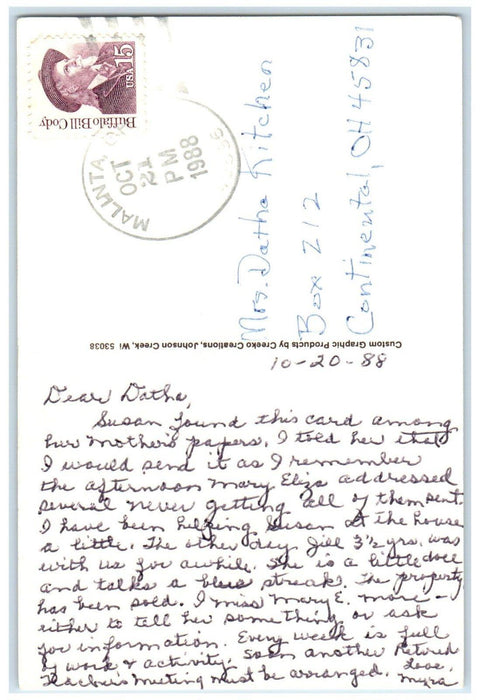 USA 15
Buffalo Bill Cody
MALINTA, OH
OCT
21
PM
1988
Mrs. Datha Kitchen
Box 212
Continental, OH 45831
Custom Graphic Products by Creeko Creations, Johnson Creek, Wi 53038
10-20-88
Dear Datha,
Susan found this card among
her mother's papers. I told her that
I would send it as I remember
the afternoon Mary Eliza addressed
several never getting all of them sent.
I have been helping Susan at the house
a little. The other day Jill 3½ yrs. was
with us for awhile. She is a little doll
and talks a blue streak. The property
has been sold. I miss Mary E. more -
either to tell her something or ask
for information. Every week is full
of work & activity. Soon another Retired
Teacher's meeting must be arranged. Love,
Myra